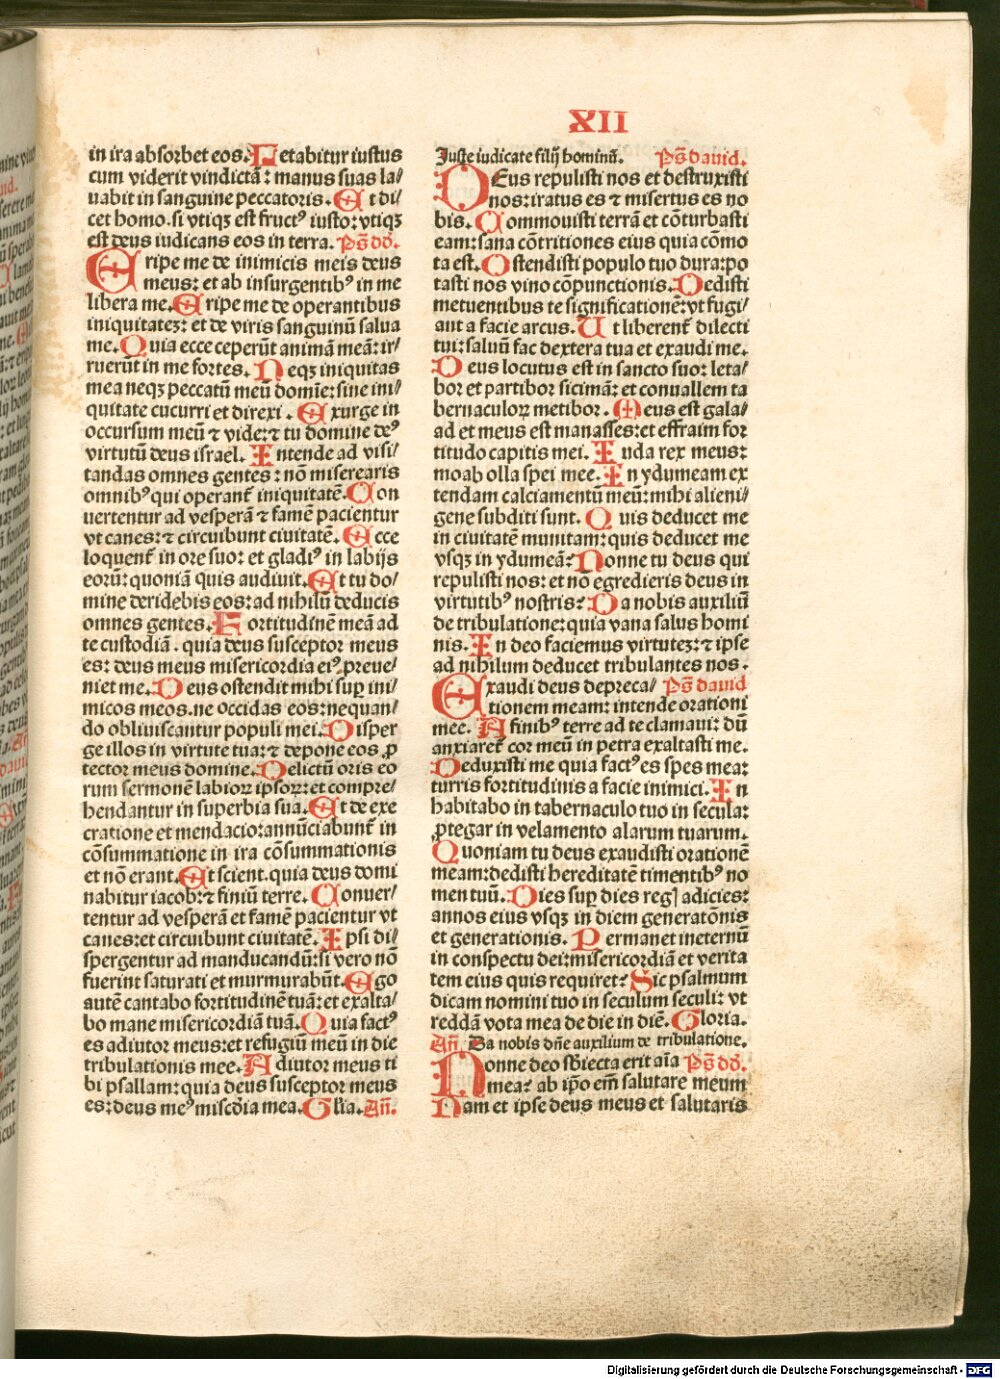 XII
in ira absorbet eos. Letabitur iustus
cum viderit vindictā: manus suas la/
uabit in sanguine peccatoris. Et di/
cet homo. si vtiqȝ est fructꝰ iusto: vtiqȝ
est deus iudicans eos in terra. Ps̄ dd̄.
Eripe me de inimicis meis deus
meus: et ab insurgentibꝰ in me
libera me. Eripe me de operantibus
iniquitateȝ: et de viris sanguinū salua
me. Quia ecce ceperūt animā meā: ir/
ruerūt in me fortes. Neqȝ iniquitas
mea neqȝ peccatū meū domīe: sine ini/
quitate cucurri et direxi. Exurge in
occursum meū ⁊ vide: ⁊ tu domine deꝰ
virtutū deus israel. Intende ad visi/
tandas omnes gentes: nō miserearis
omnibꝰ qui operant̄ iniquitatē. Con
uertentur ad vesperā ⁊ famē pacientur
vt canes: ⁊ circuibunt ciuitatē. Ecce
loquent̄ in ore suo: et gladiꝰ in labijs
eorū: quoniā quis audiuit. Et tu do/
mine deridebis eos: ad nihilū deducis
omnes gentes. Fortitudinē meā ad
te custodiā. quia deus susceptor meus
es: deus meus misericordia eiꝰ preue/
niet me. Deus ostendit mihi suꝑ ini/
micos meos. ne occidas eos: nequan/
do obliuiscantur populi mei. Disper
ge illos in virtute tua: ⁊ depone eos ꝓ
tector meus domine. Delictū oris eo
rum sermonē labioꝝ ipsoꝝ: et compre/
hendantur in superbia sua. Et de exe
cratione et mendacio: annūciabunt̄ in
cōsummatione in ira cōsummationis
et nō erant. Et scient. quia deus domi
nabitur iacob: ⁊ finiū terre. Conuer/
tentur ad vesperā et famē pacientur vt
canes: et circuibunt ciuitatē. Ipsi di/
spergentur ad manducandū: si vero nō
fuerint saturati et murmurabūt. Ego
autē cantabo fortitudinē tuā: et exalta/
bo mane misericordiā tuā. Quia factꝰ
es adiutor meus: et refugiū meū in die
tribulationis mee. Adiutor meus ti
bi psallam: quia deus susceptor meus
es: deus meꝰ misc̄dia mea. Gl̄ia. Añ.
Iuste iudicate filij hominū. Ps̄ dauid.
DEus repulisti nos et destruxisti
nos: iratus es ⁊ misertus es no
bis. Commouisti terrā et cōturbasti
eam: sana cōtritiones eius quia cōmo
ta est. Ostendisti populo tuo dura: po
tasti nos vino cōpunctionis. Dedisti
metuentibus te significationē: vt fugi/
ant a facie arcus. Ut liberent̄ dilecti
tui: saluū fac dextera tua et exaudi me.
Deus locutus est in sancto suo: leta/
bor et partibor sicimā: et conuallem ta
bernaculoꝝ metibor. Meus est gala/
ad et meus est manasses: et effraim for
titudo capitis mei. Iuda rex meus:
moab olla spei mee. In ydumeam ex
tendam calciamentū meū: mihi alieni/
gene subditi sunt. Quis deducet me
in ciuitatē munitam: quis deducet me
vsqȝ in ydumeā? Nonne tu deus qui
repulisti nos: et nō egredieris deus in
virtutibꝰ nostris? Da nobis auxiliū
de tribulatione: quia vana salus homi
nis. In deo faciemus virtuteȝ: ⁊ ipse
ad nihilum deducet tribulantes nos.
Exaudi deus depreca/ Ps̄ dauid
tionem meam: intende orationi
mee. A finibꝰ terre ad te clamaui: dū
anxiaret̄ cor meū in petra exaltasti me.
Deduxisti me quia factꝰ es spes mea:
turris fortitudinis a facie inimici. In
habitabo in tabernaculo tuo in secula:
ꝓtegar in velamento alarum tuarum.
Quoniam tu deus exaudisti orationē
meam: dedisti hereditatē timentibꝰ no
men tuū. Dies suꝑ dies regꝭ adicies:
annos eius vsqȝ in diem generatōnis
et generationis. Permanet ineternū
in conspectu dei: misericordiā et verita
tem eius quis requiret? Sic psalmum
dicam nomini tuo in seculum seculi: vt
reddā vota mea de die in diē. Gloria.
Añ. Da nobis dñe auxilium de tribulatione.
Nonne deo sb̄iecta erit aīa Ps̄ dd̄.
mea? ab ip̄o em̄ salutare meum
Nam et ipse deus meus et salutaris
Digitalisierung gefördert durch die Deutsche Forschungsgemeinschaft - DFG